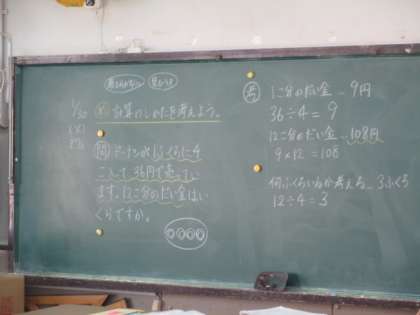 1/30
計算のしかたを考えよう。
問
ドーナツが1ふくろに4
こ入って、36円で売ってい
ます。12こ分のだい金はい
くらですか。
1こ分のだい金…9円
36÷4=9
12こ分のだい金…108円
9×12=108
何ふくろいるか考える…3ふくろ
12÷4=3